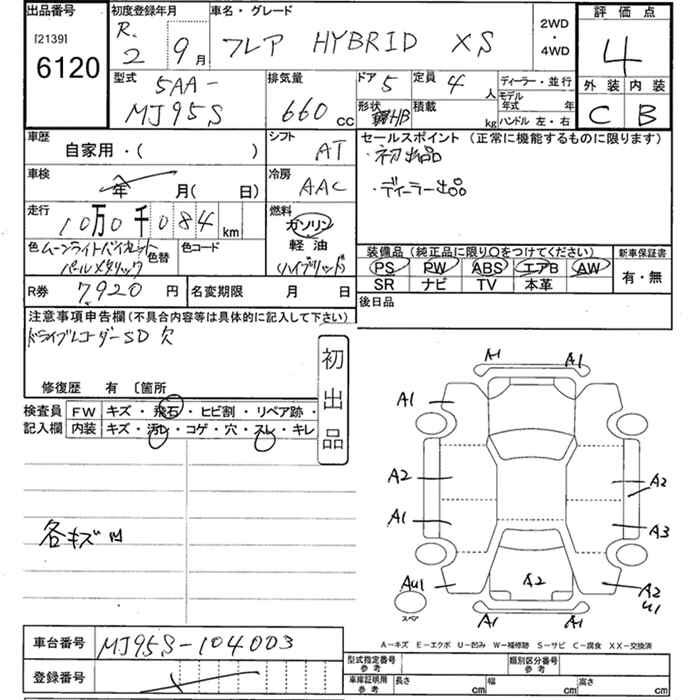 出品番号
[2139]
6120
初度登録年月
R. 2 9月
車名・グレード
フレア HYBRID XS
2WD
・
4WD
評価点
4
外装 内装
C B
型式
5AA-
MJ95S
排気量
660 cc
ドア 5
定員 4 人
ディーラー・並行
形状 HB
積載 kg
モデル年式 年
ハンドル 左・右
車歴
自家用・( )
シフト
AT
車検
年 月(日)
冷房
AAC
走行
10万0千084 km
燃料
ガソリン
軽油
(ハイブリッド)
色 ムーンライトバイオレットパールメタリック
色替
色コード
R券 7,920 円
名変期限 月 日
セールスポイント(正常に機能するものに限ります)
・初出品
・ディーラー出品
装備品(純正品に限り○をつけてください)
PS PW ABS エアB AW
SR ナビ TV 本革
新車保証書
有・無
後日品
注意事項申告欄(不具合内容等は具体的に記入して下さい)
ドライブレコーダーSD欠
修復歴 有 〔箇所
初出品
検査員記入欄
FW キズ・飛石・ヒビ割・リペア跡・
内装 キズ・汚レ・コゲ・穴・スレ・キレ
各キズ凹
A1 A1
A1
A2 A2
A1 A3
AU1 A2 A2
U1
A1 A1
スペア
A-キズ E-エクボ U-凹み W-補修跡 S-サビ C-腐食 XX-交換済
車台番号 MJ95S-104003
登録番号
型式指定番号 参考
類別区分番号 参考
車庫証明用 参考
長さ cm 幅 cm 高さ cm